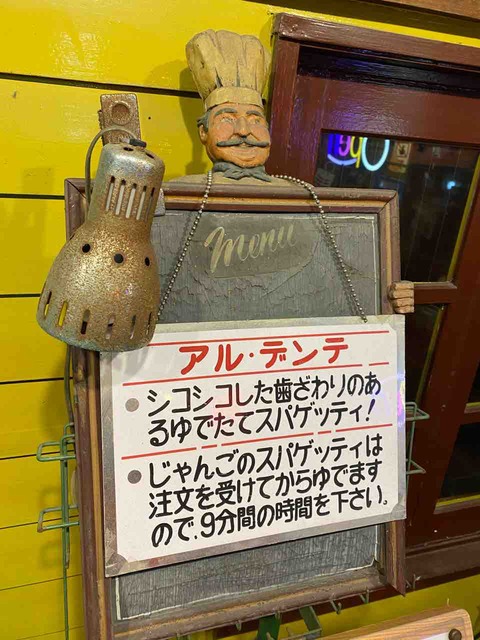 Menu
アル・デンテ
シコシコした歯ざわりのあ
るゆでたてスパゲッティ!
じゃんごのスパゲッティは
注文を受けてからゆでます
ので、9分間の時間を下さい。